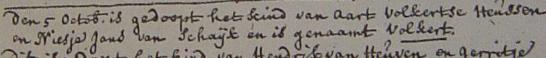 Den 5 Octob. is gedoopt het kind van Aart Volkertse Heussen
en Niesje Jans van Schayk en is genaamt Volkert.
kind van Hendrik van Heuven en Gerritje